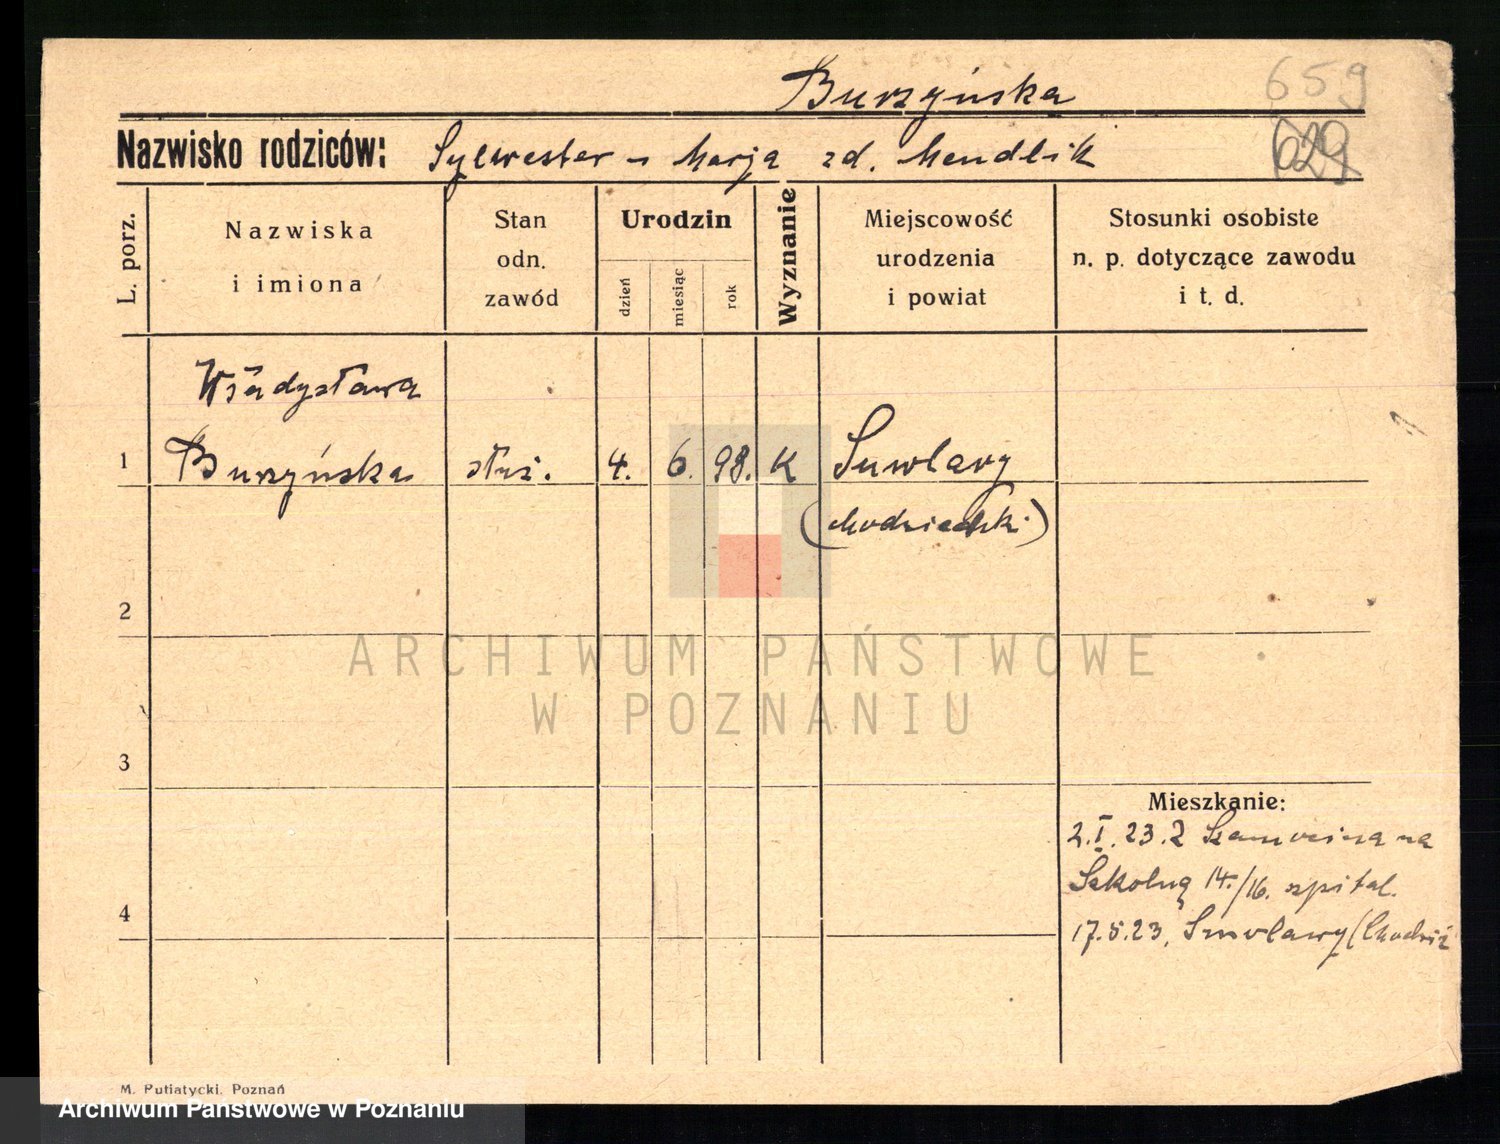 Burzyńska
659
629
Nazwisko rodziców: Sylwester i Marja zd. Mendlik
L. porz.
Nazwiska
i imiona
Stan
odn.
zawód
Urodzin
dzień
miesiąc
rok
Wyznanie
Miejscowość
urodzenia
i powiat
Stosunki osobiste
n. p. dotyczące zawodu
i t. d.
Władysława
1 Burzyńska służ. 4. 6. 98. K Smolary
(chodzieski)
2
ARCHIWUM PAŃSTWOWE
W POZNANIU
3
Mieszkanie:
2.I.23. z Szamocina na
Szkolną 14./16. szpital.
4
17.5.23. Smolary (Chodzież
M. Putiatycki, Poznań
Archiwum Państwowe w Poznaniu